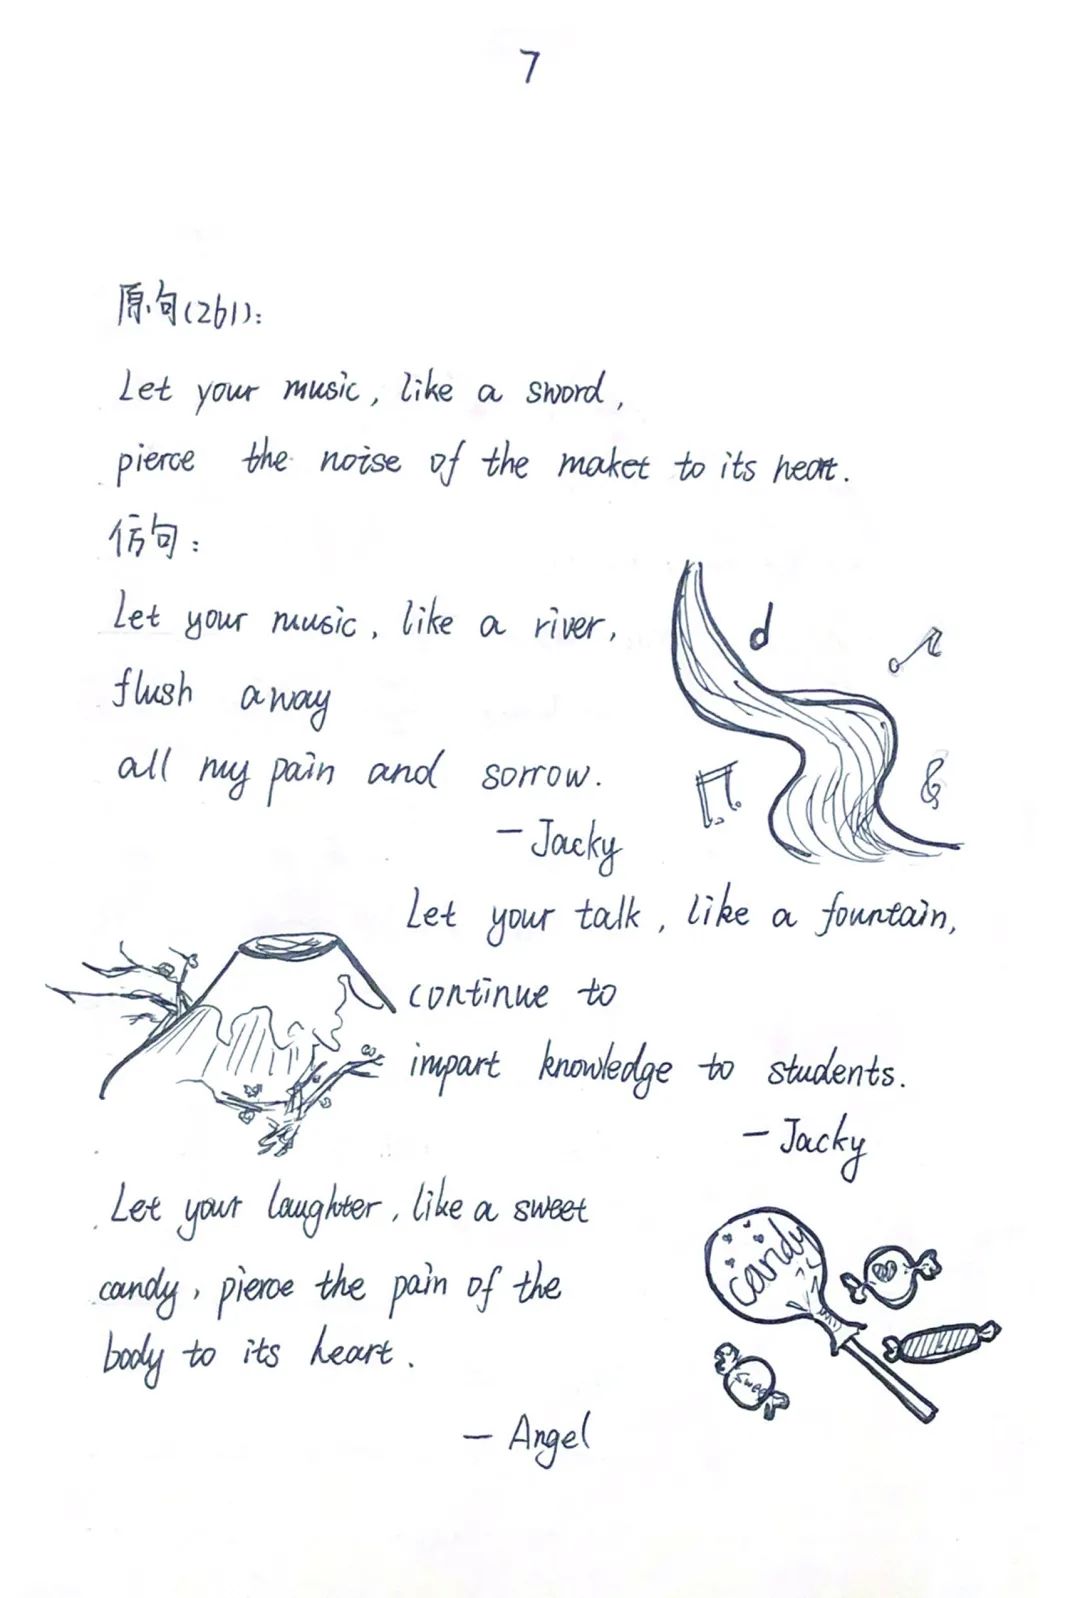 7
原句(261):
Let your music, like a sword,
pierce the noise of the maket to its heart.
仿句:
Let your music, like a river,
flush away
all my pain and sorrow.
— Jacky
Let your talk, like a fountain,
continue to
impart knowledge to students.
— Jacky
Let your laughter, like a sweet
candy, pierce the pain of the
body to its heart.
candy
sweet
— Angel